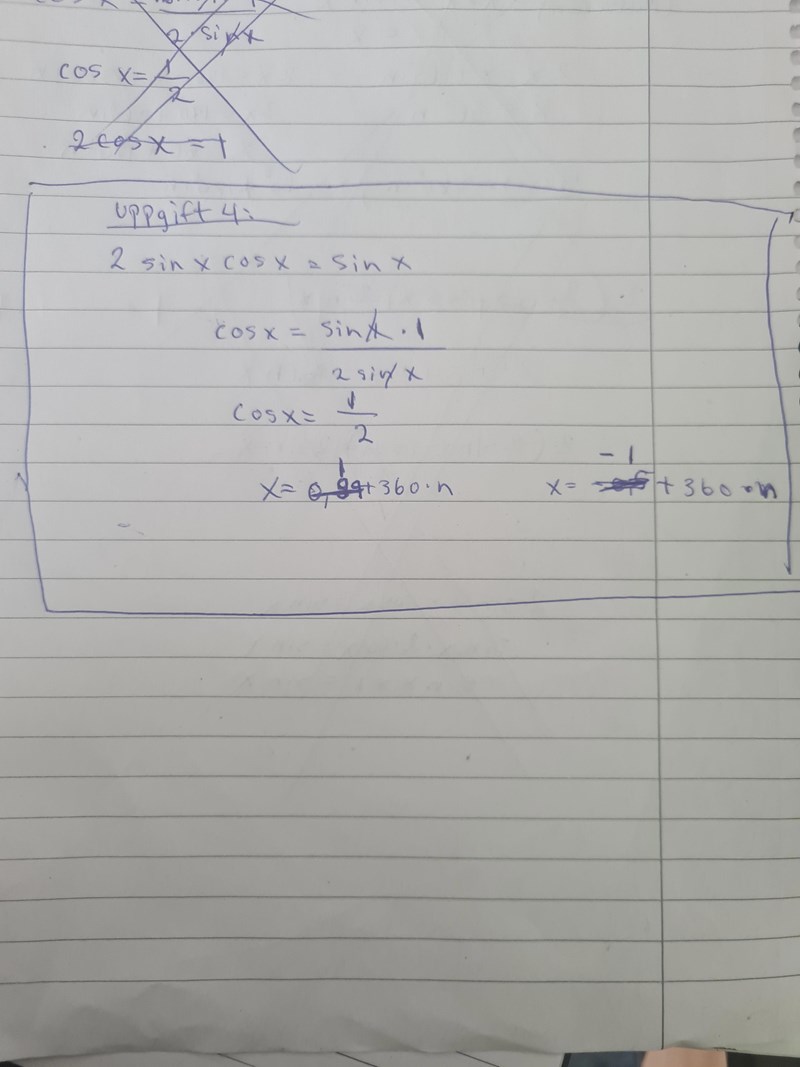 2 · sin x
cos x = 1/2
2 cos x = 1
Uppgift 4:
2 sin x cos x = sin x
cos x = sin x · 1
2 sin x
cos x = 1/2
x = 1 + 360 · n x = -1 + 360 · n